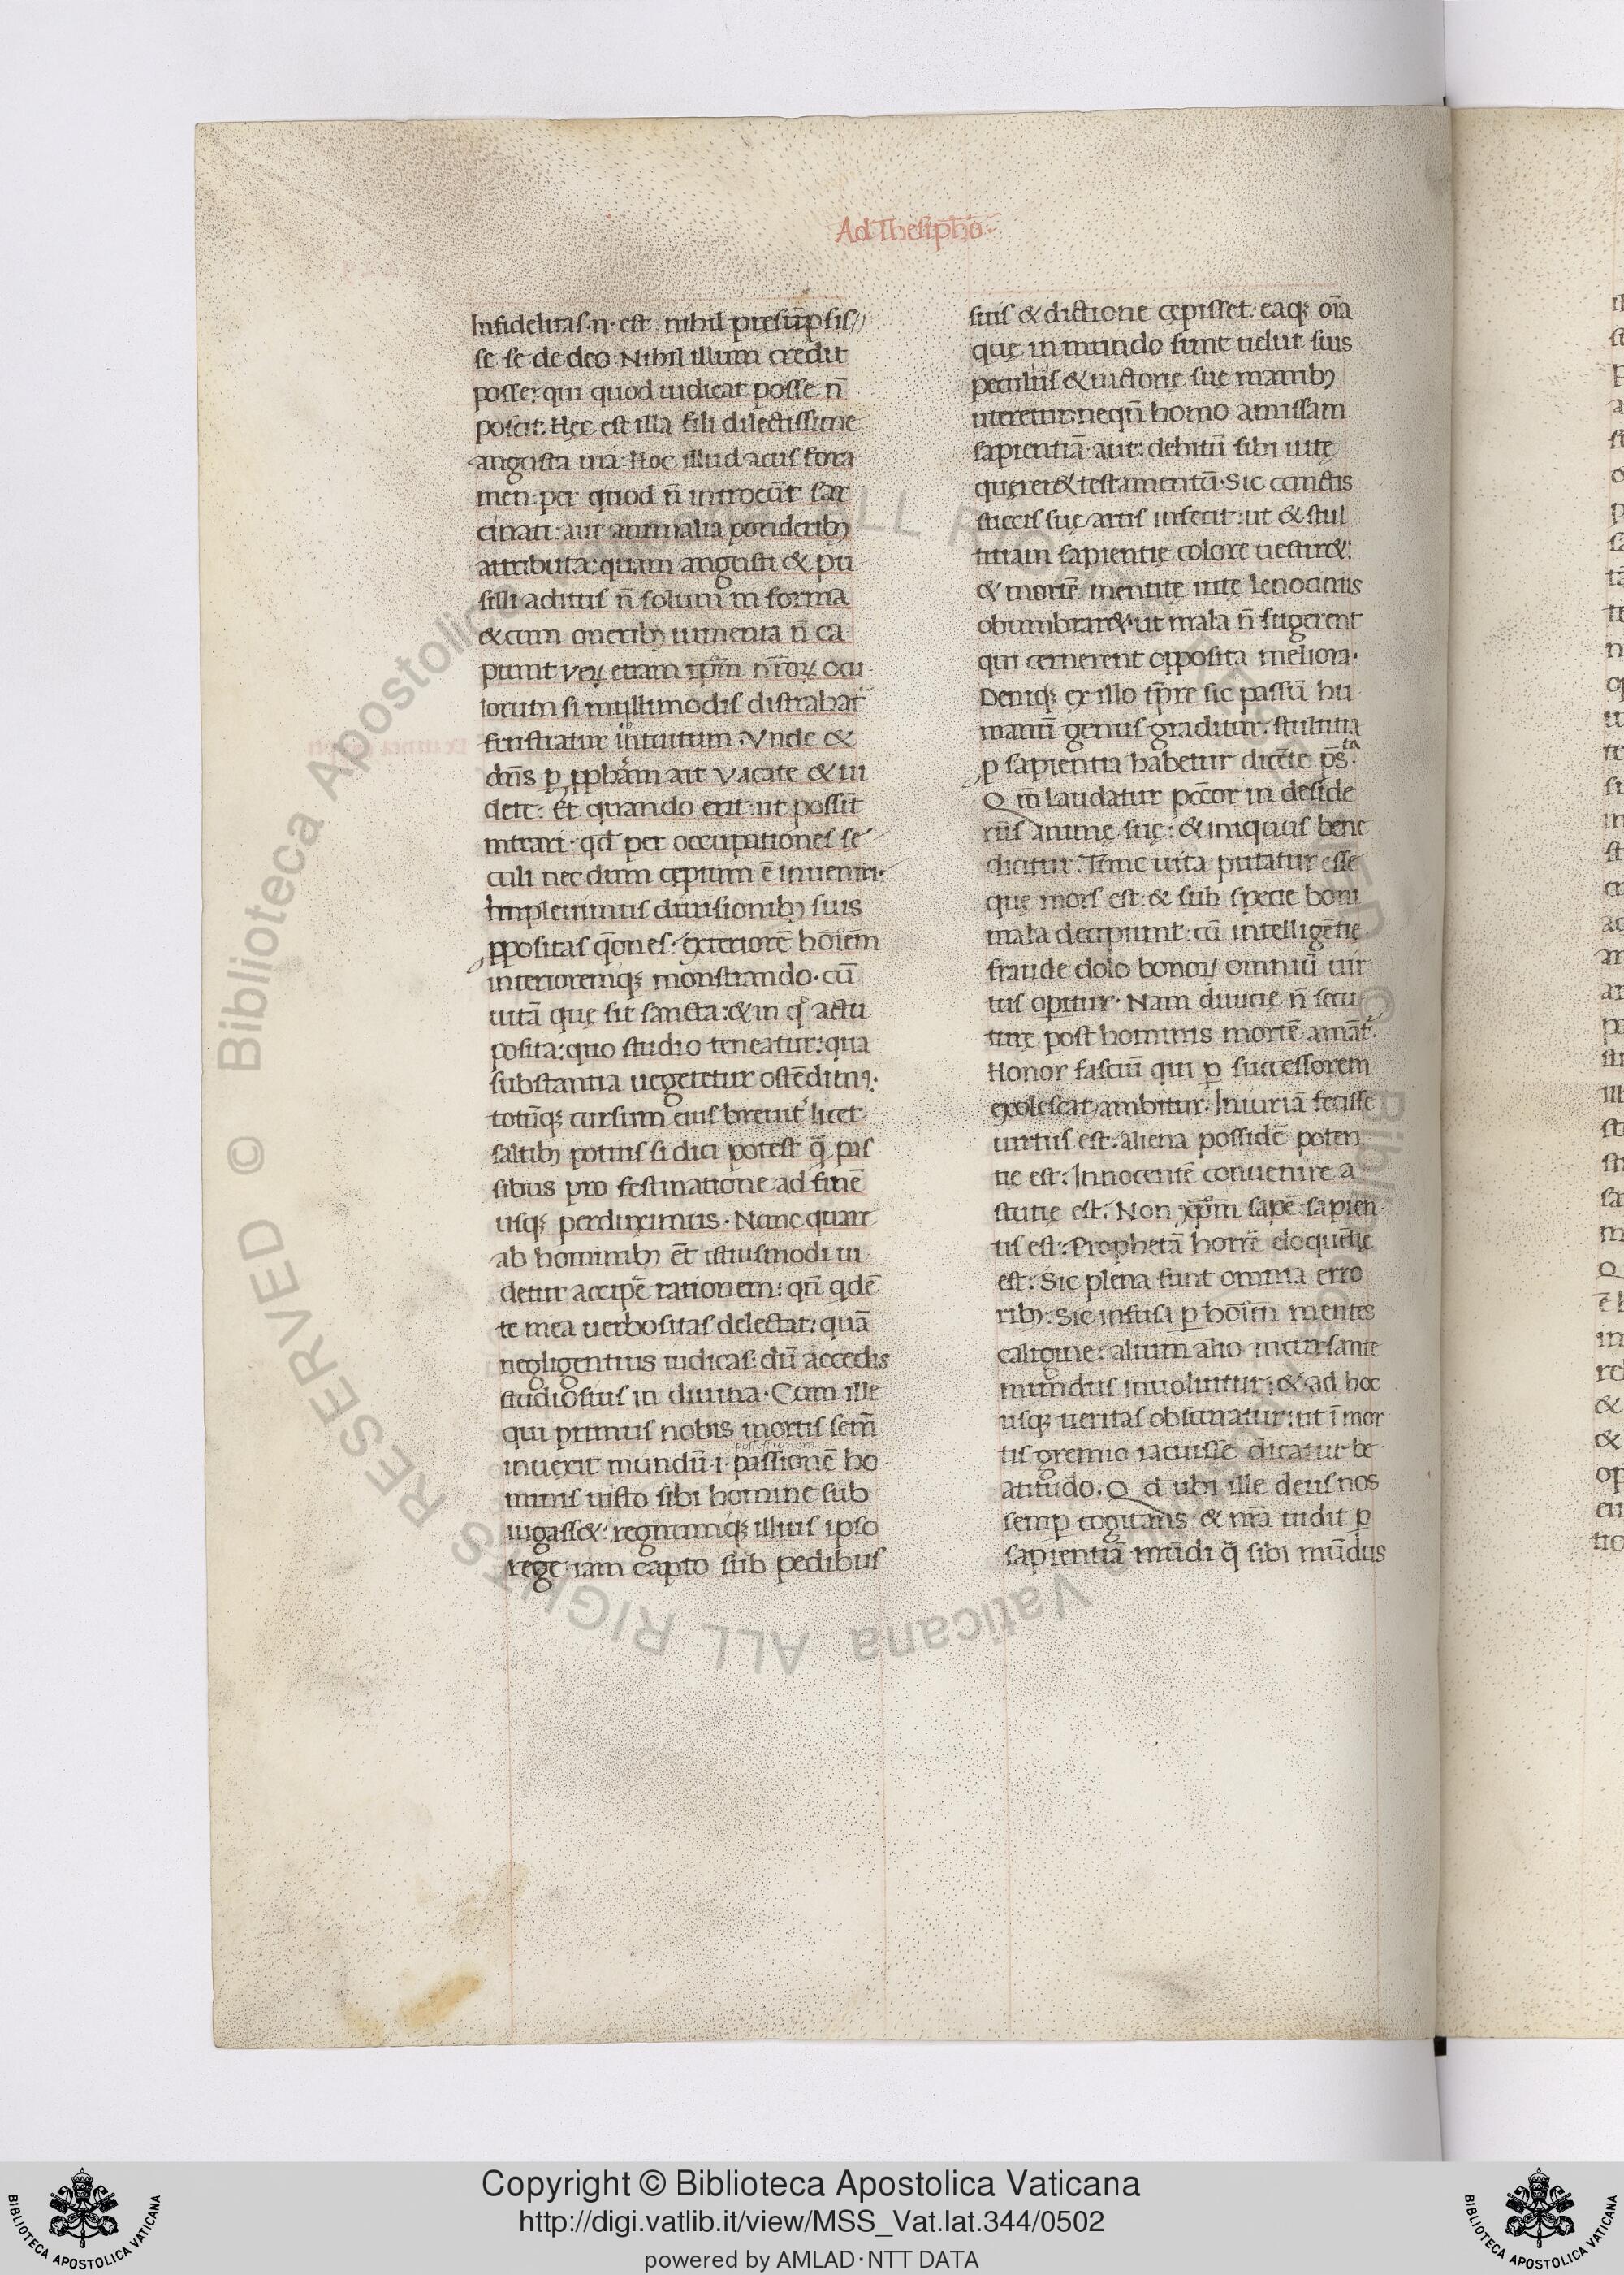 Ad Thesiphō
Infidelitas·n̄·est nihil presūpsis
se se de deo. Nihil illum credit
posse: qui quod iudicat posse n̄
poscit. Hęc est illa fili dilectissime
angusta uia. Hoc illud acus fora
men: per quod n̄ introeūt sar
cinati: aut animalia ponderibꝫ
attributa: quam angusti & pu
silli aditus n̄ solum in forma
& cum oneribꝫ iumenta n̄ ca
piunt veꝝ etiam ip̄m nr̄oꝝ ocu
lorum si multimodis distrahat̃
frustratur intuitum. Vnde &
dn̄s ꝑ ꝓpham ait Vacate & ui
dete. Et quando erit: ut possīt
intrari· qd̄ per occupationes sę
culi nec dum cęptum ē inueniri.
Impleuimus diuisionibꝫ suis
ꝓpositas q̄ones: exteriorē hoīem
interioremqꝫ monstrando. cū
uitā quę sit sancta: & in qͦ actu
posita: quo studio teneatur: qua
substantia uegetetur ostēdimꝰ.
totūqꝫ cursum eius breuit̓ licet
saltibꝫ potius si dici potest q̄ pas
sibus pro festinatione ad finē
usqꝫ perduximus. Nunc quare
ab hominibꝫ ēt istiusmodi ui
detur accipē rationem: qn̄ qdē
te mea uerbositas delectat: quā
negligentius iudicas: dū accedis
studiosius in diuina. Cum ille
qui primus nobis mortis sem̄
possessionem
inuexit mundū·i·passionē ho
minis uicto sibi homine sub
iugass&: regnumqꝫ illius ipso
rege iam capto sub pedibus
suis & dictione cępisset. eaqꝫ oīa
quę in mundo sunt uelut suis
peculiis & uictorie sue manibꝫ
uteretur: neqn̄ homo amissam
sapientiā aut: debitū sibi uitę
quęrer& testamentū. Sic cunctis
succis suę artis infecit: ut & stul
titiam sapientię colore uestir&:
& mortē mentitę uitę lenociniis
obumbrar&: ut mala n̄ fugerent
qui cernerent opposita meliora.
Deniqꝫ ex illo tp̄re sic passū hu
manū genus graditur: stultitia
ꝑ sapientia habetur dicēte ps̄ta.
Qm̄ laudatur pccōr in deside
riis animę suę: & iniquus bene
dicitur. Tunc uita putatur esse
quę mors est: & sub specie boni
mala decipiunt: cū intelligētię
fraude dolo bonoꝝ omniū uir
tus opitur. Nam diuicię n̄ secu
turę post hominis mortē amāt̃.
Honor fasciū qui ꝑ successorem
exolescat, ambitur. Iniuriā fecisse
uirtus est. aliena possidē poten
tię est: Innocentē conuenire a
stutię est. Non xp̄m sapē sapien
tis est: Prophetā horrē eloquētię
est. Sic plena sunt omnia erro
ribꝫ. Sic infusa ꝑ hoīm mentes
caligine: alium alio incursante
mundus inuoluitur: & ad hoc
usqꝫ ueritas obscuratur: ut ī mor
tis gremio iacuisse dicatur be
atitudo. Qd ubi ille deus nos
semꝑ cogitans & nr̄a uidit ꝑ
sapientiā mūdi q̄ sibi mūdus
Copyright © Biblioteca Apostolica Vaticana
http://digi.vatlib.it/view/MSS_Vat.lat.344/0502
powered by AMLAD·NTT DATA